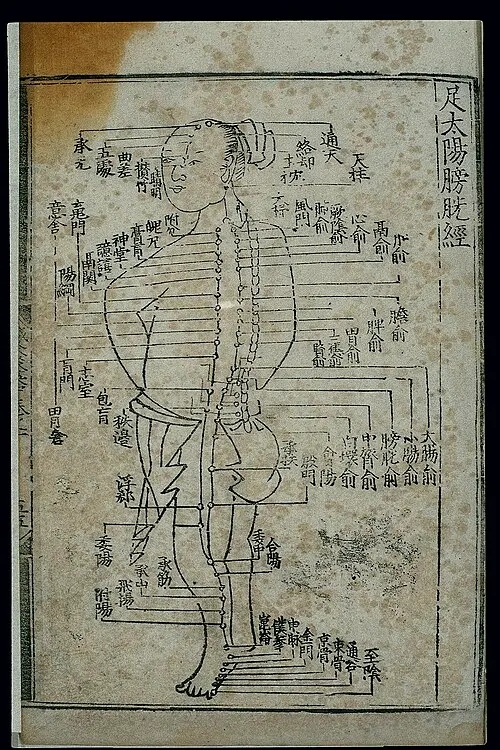 足太陽膀胱經
通天
絡却
天柱
承光
五處
曲差
攢竹
睛明
風門
肺俞
厥陰俞
心俞
膈俞
附分
魄戶
膏肓
神堂
譩譆
膈關
意舍
陽綱
膽俞
脾俞
胃俞
三焦俞
腎俞
肓門
志室
包肓
秩邊
胃倉
大腸俞
小腸俞
膀胱俞
中膂俞
白環俞
會陽
承扶
殷門
浮郄
委陽
委中
合陽
承筋
承山
飛揚
附陽
崑崙
僕參
申脉
金門
京骨
束骨
通谷
至陰